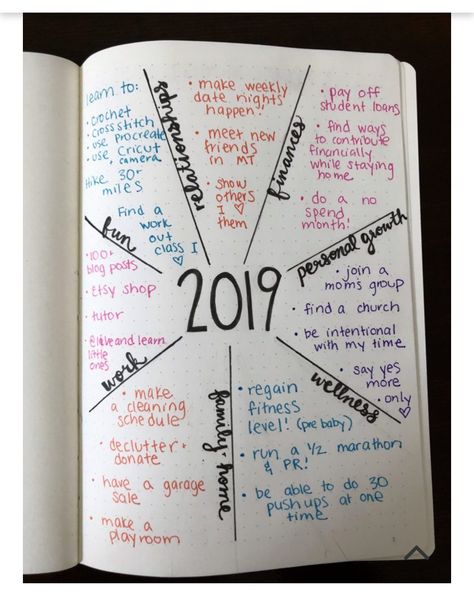 learn to:
• crochet
• cross stitch
• use Procreate
• use Cricut
• camera
Hike 30+
miles
Find a
work
out
class I
♡
fun
relationships
• make weekly
date nights
happen!
• meet new
friends
in MT
• show
others
I ♡
them
finances
• pay off
student loans
• find ways
to contribute
financially
while staying
home
• do a no
spend
month!
personal growth
• join a
moms group
• find a church
• be intentional
with my time
• say yes
more
• only
♡
2019
• 100+
blog posts
• Etsy shop
• tutor
and learn
little
ones
work
• make
a cleaning
schedule
• declutter +
donate
• have a garage
sale
• make a
playroom
family + home
wellness
• regain
fitness
level! (pre baby)
• run a 1/2 marathon
& PR!
• be able to do 30
push ups at one
time